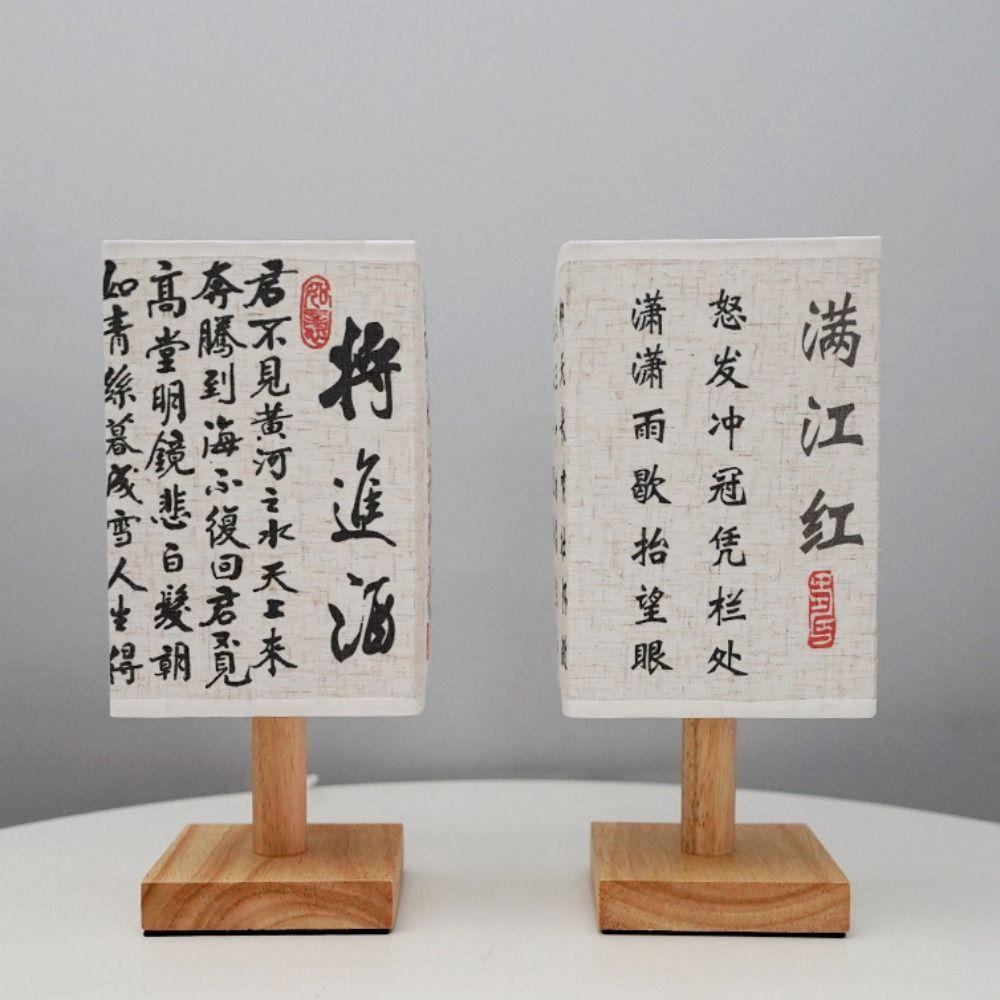 將進酒
君不見黃河之水天上來
奔騰到海不復回君不見
高堂明鏡悲白髮朝
如青絲暮成雪人生得
满江红
怒发冲冠凭栏处
潇潇雨歇抬望眼